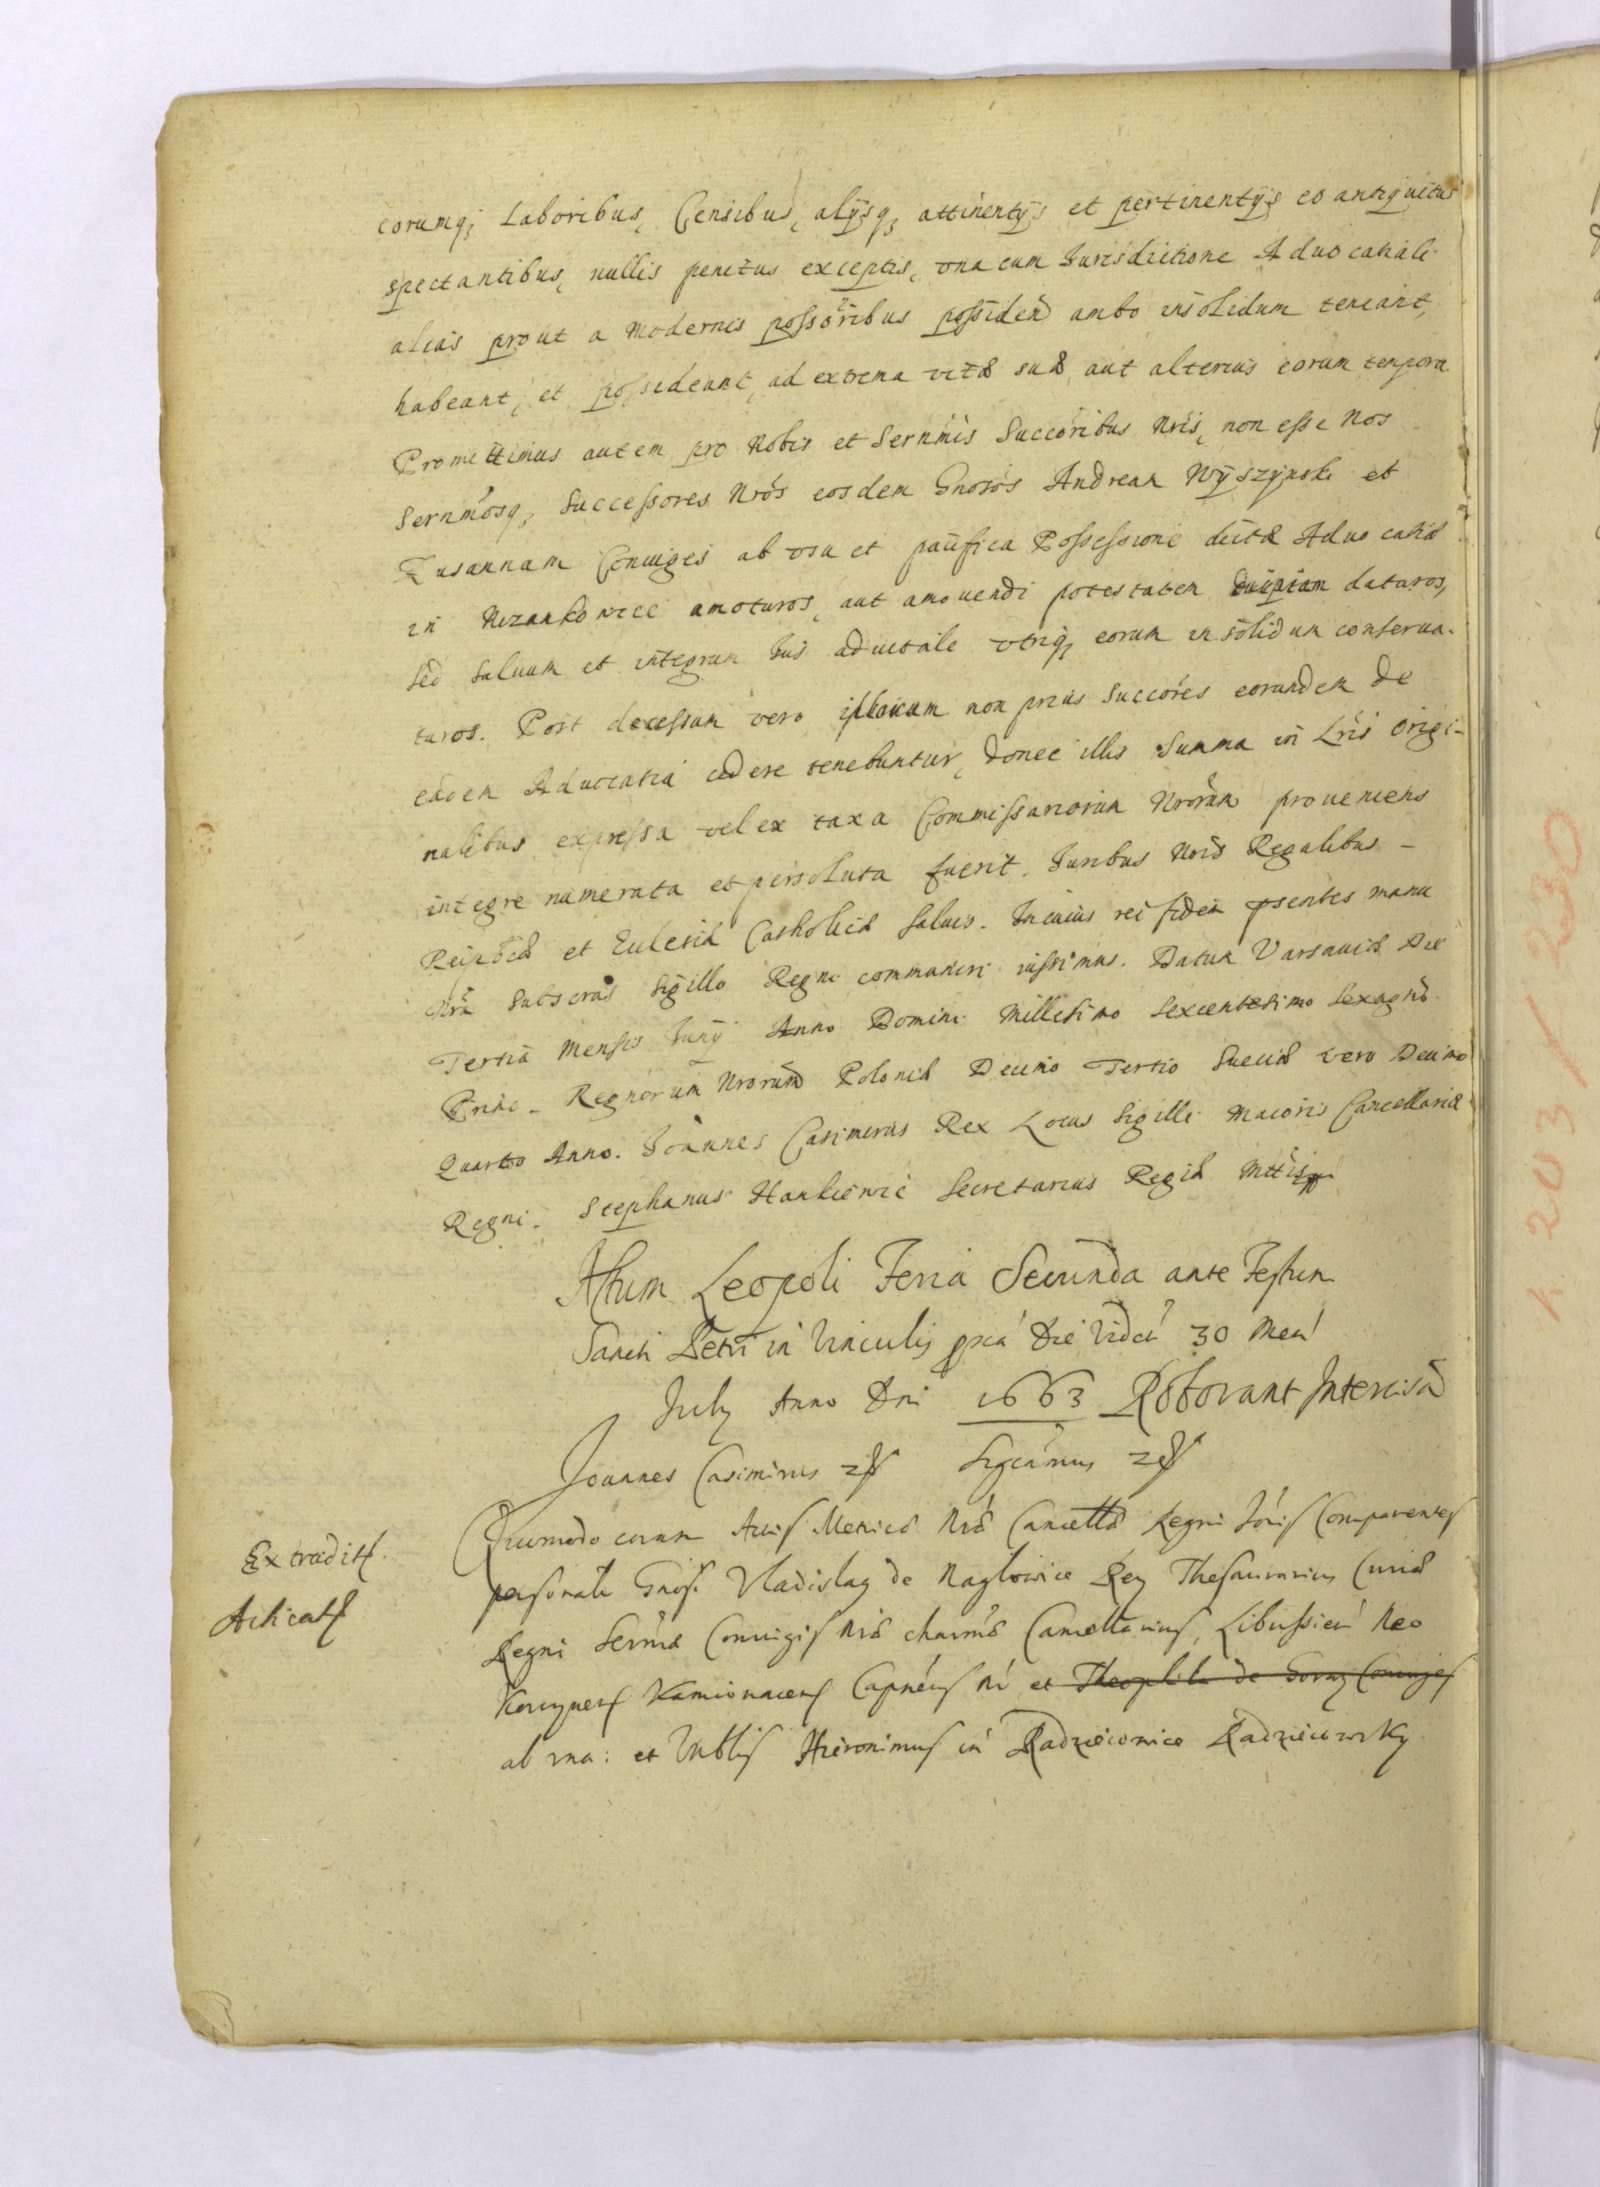 eorumq; Laboribus, Censibus, alÿsq; attinentÿs et pertinentÿs eo antiquitus
spectantibus, nullis penitus exceptis, vna cum Jurisdictione Aduocatiali
alias prout a modernis possoribus possiden ambo insolidum teneant,
habeant, et possideant, ad extrema vitæ suæ, aut alterius eorum tempora
Promittimus autem pro Nobis et Sernmis Succoribus Nris, non esse Nos
Sernmosq; Successores Nros eosdem Gnosos Andream Wÿszÿnski et
Zusannam Coniuges ab vsu et pacifica Possessione dictæ Aduocatiæ
in Nizankowice amoturos, aut amouendi potestatem cuipiam daturos,
sed saluum et integrum Jus aduitale vtriq; eorum in solidum conserua-
turos. Post decessum vero illorum non prius Succores eorundem de
eadem Aduocatia cedere tenebuntur, donec illis Summa in Lris Origi-
nalibus expressa vel ex taxa Commissariorum Nrorum proueniens
integre numerata et persoluta fuerit. Juribus Nris Regalibus -
Reipbcæ et Ecclesiæ Catholicæ saluis. In cuius rei fidem psentes manu
Nra subscras sigillo Regni communiri iussimus. Datum Varsauiæ Die
Tertia Mensis Junÿ Anno Domini Millesimo Sexcentesimo Sexagmo
Primo. Regnorum Nrorum Poloniæ Decimo Tertio Sueciæ vero Decimo
Quarto Anno. Joannes Casimirus Rex Locus Sigilli Maioris Cancellariæ
Regni. Stephanus Hankiewic Secretarius Regiæ Mttis
Actum Leopoli Feria Secunda ante Festum
Sancti Petri in Vinculis pxa Die Videt 30 Men
July Anno Dni 1663 Roborant Intercisa
Joannes Casimirus
Sigcamus
Quomodo coram Actis Metrices Nræ Cancellæ Regni Comparentes
Extradit.
personalr Gnosi Vladislaus de Naglowice Rey Thesaurarius Curiæ
Acticat
Regni Sermæ Coniugis Nræ charmæ Cancellarius, Libussien Neo
Korcynens Kamionacens Capneus et Theophila de Coniuges
ab vna: et Vrblis Hieronimus in Radzieiowice Radzieiowsky
K 203 / 230